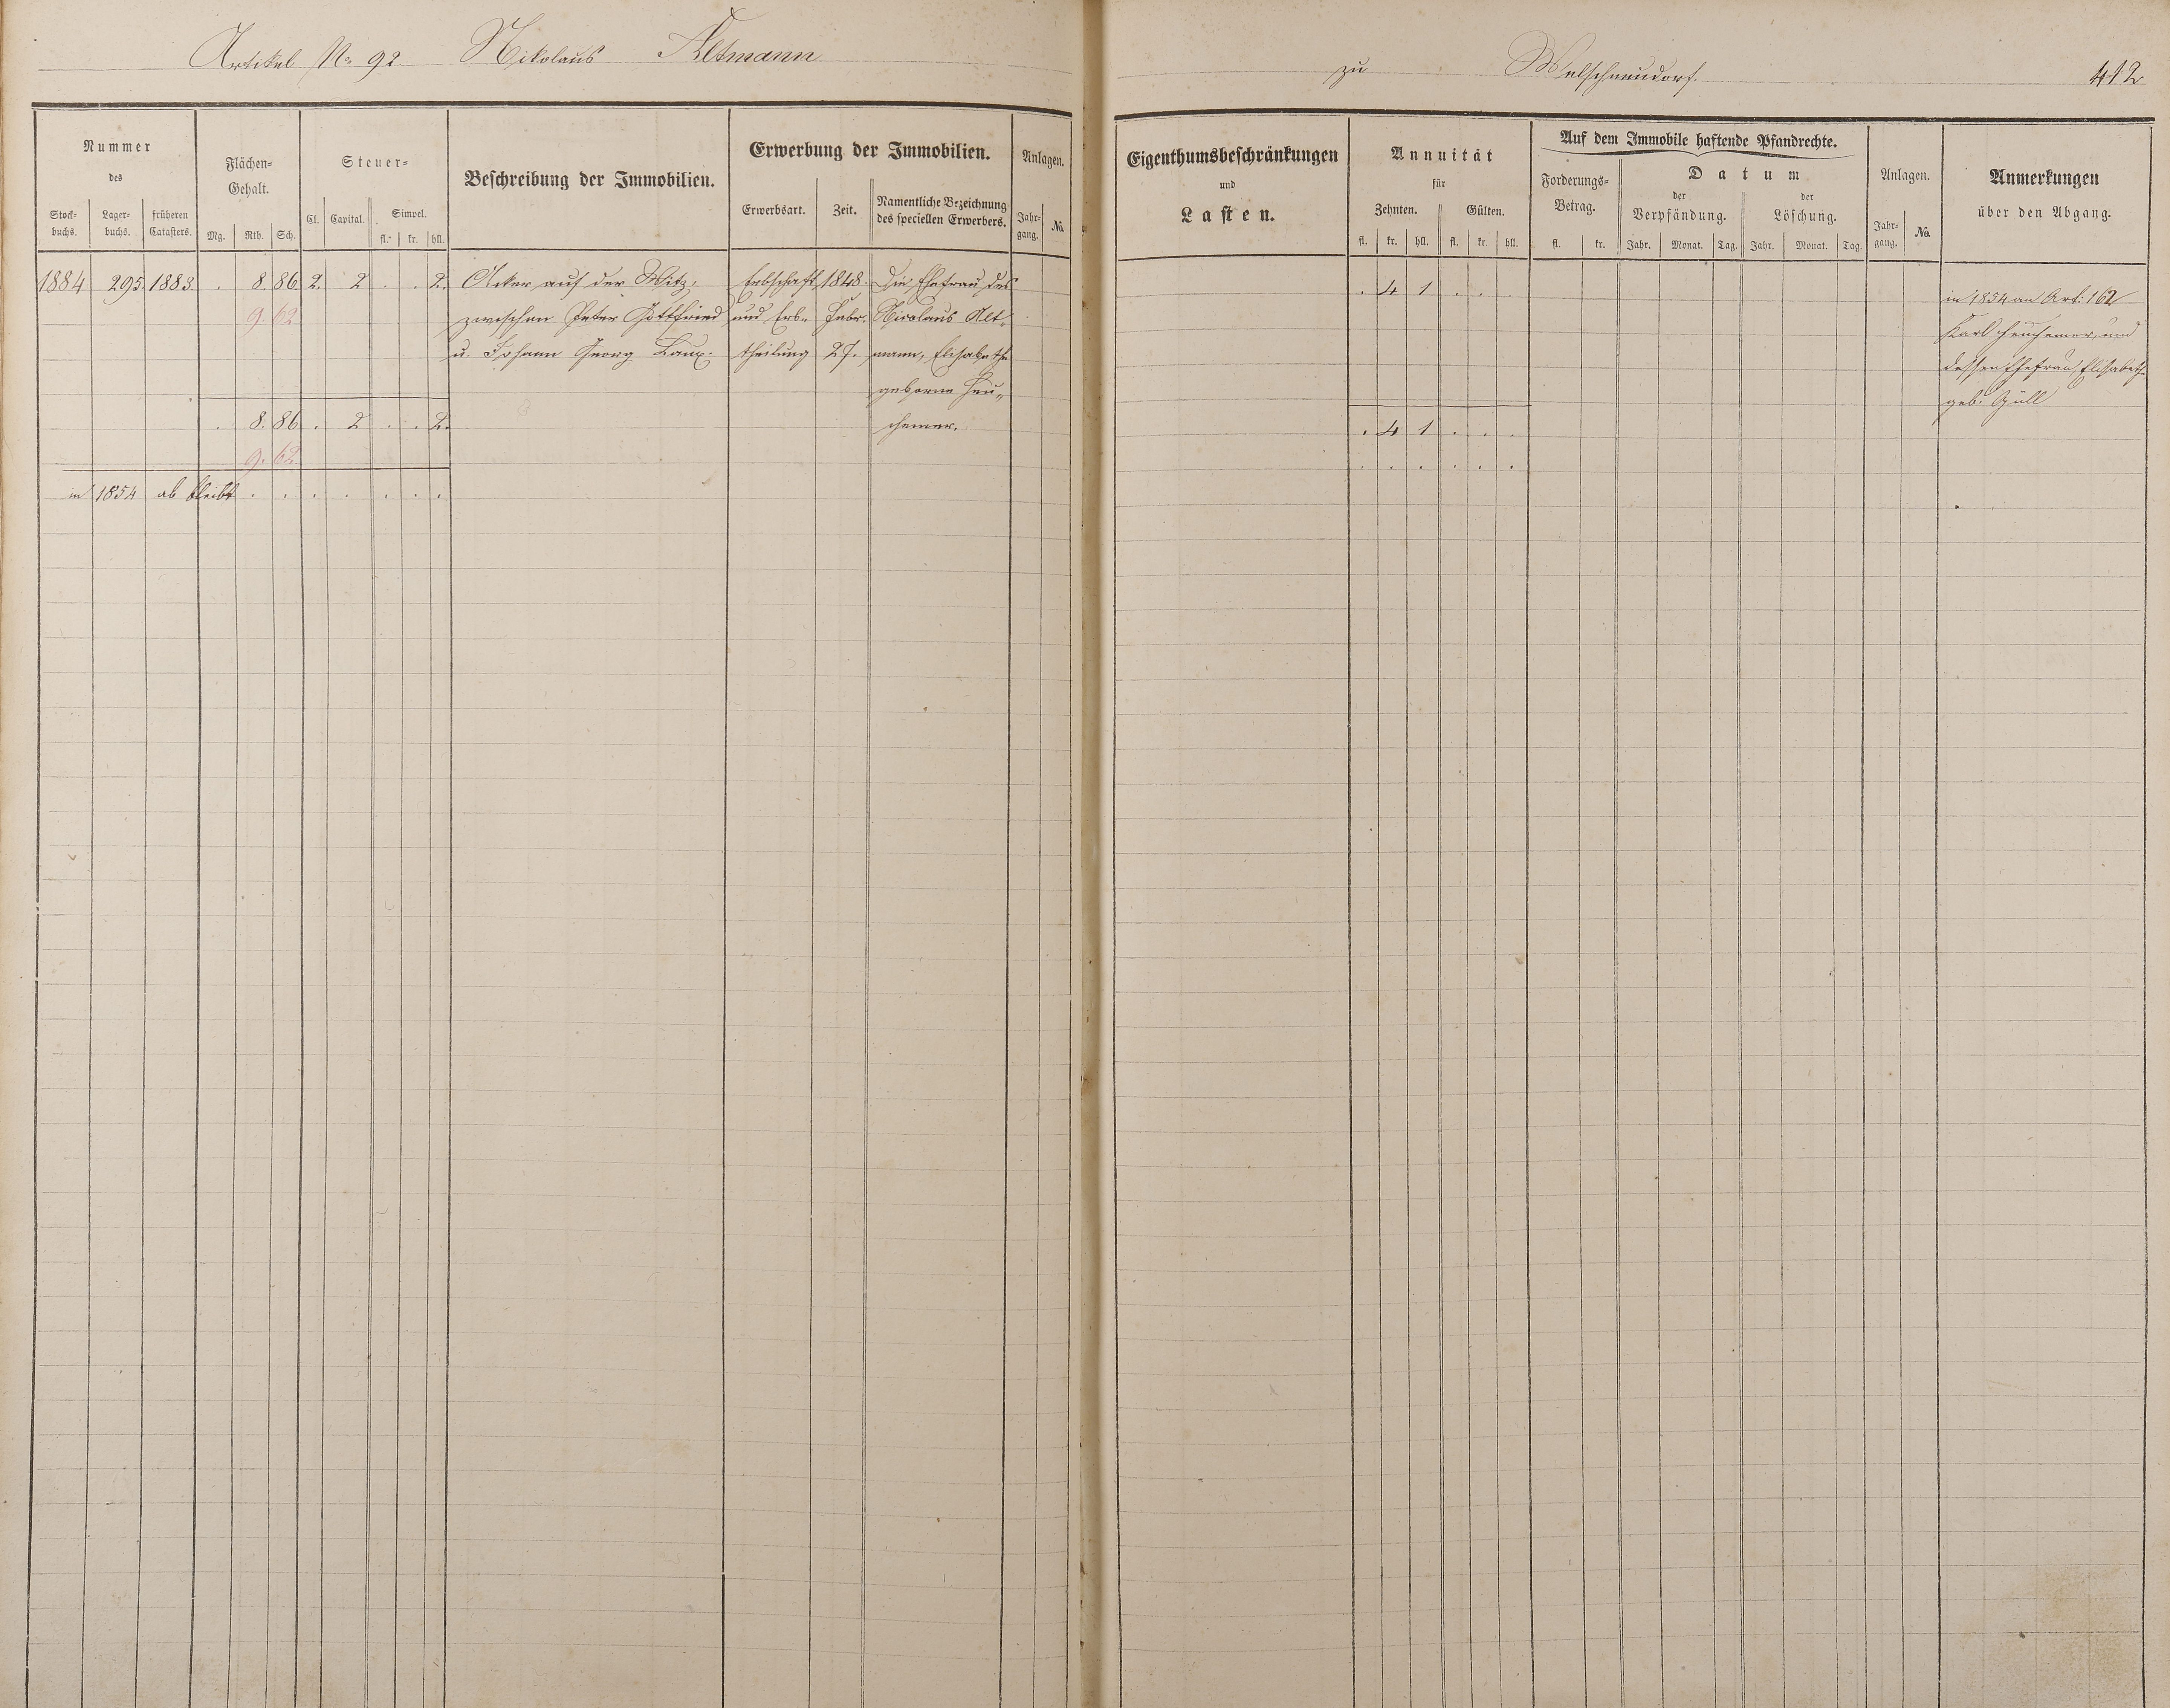 Artikel No 92 Nikolaus Altmann
zu Welschneudorf. 412
Nummer
des
Stock-
buchs.
Lager-
buchs.
früheren
Catasters.
Flächen-
Gehalt.
Mg. Rth. Sch.
Steuer-
Cl. Capital. Simpel.
fl. kr. hll.
Beschreibung der Immobilien.
Erwerbung der Immobilien.
Erwerbsart. Zeit. Namentliche Bezeichnung
des speciellen Erwerbers.
Anlagen.
Jahr-
gang. No.
Eigenthumsbeschränkungen
und
Lasten.
Annuität
für
Zehnten. Gülten.
fl. kr. hll. fl. kr. hll.
Auf dem Immobile haftende Pfandrechte.
Forderungs-
Betrag.
fl. kr.
Datum
der
Verpfändung.
der
Löschung.
Jahr. Monat. Tag. Jahr. Monat. Tag.
Anlagen.
Jahr-
gang. No.
Anmerkungen
über den Abgang.
1884 295. 1883. . 8. 86. 2. 2 . . 2.
9. 62
Acker auf der
zwischen Peter Gottfried
u. Johann Georg Laux.
Erbschaft
und Erb-
theilung
1848.
Febr.
27.
Die Ehefrau des
Nicolaus Alt-
mann, Elisabethe
geborne Heu-
chemer.
. 8. 86 . 2 . . 2.
9. 62
in 1854 ab bleibt . . . . . . .
. 4 1 . . .
. 4 1 . . .
. . . . . .
in 1854 an Art: 162
Karl Heuchemer und
dessen Ehefrau, Elisabeth
geb. Güll